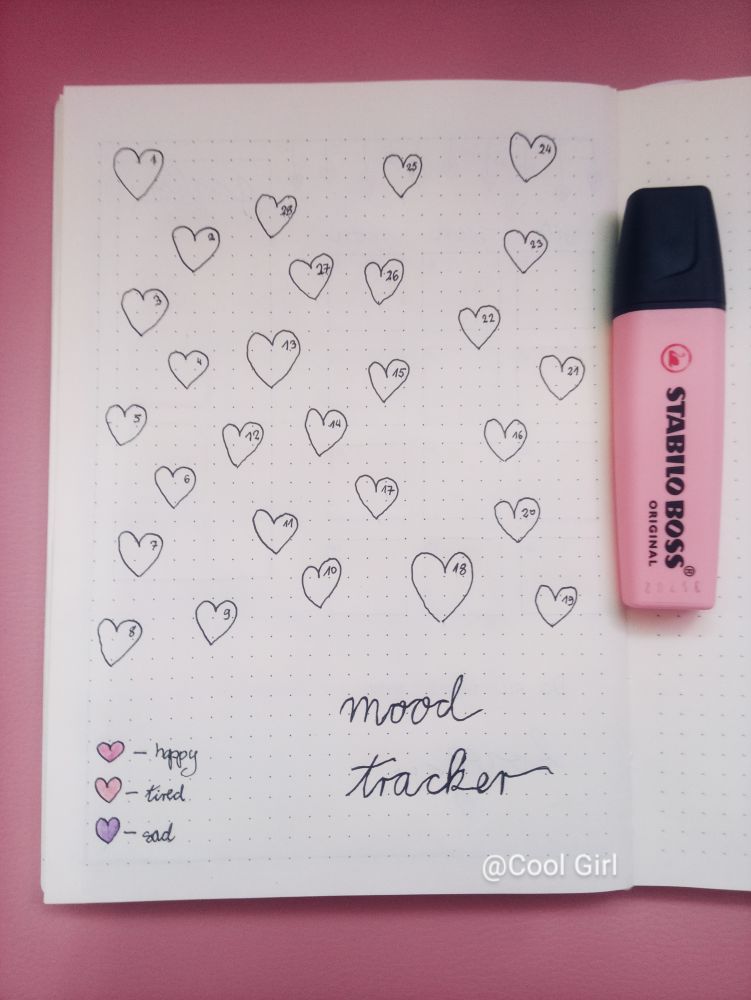 1
25
24
28
2
23
27
26
3
22
13
4
15
21
5
14
12
16
6
17
11
20
7
10
18
19
9
8
mood
tracker
– happy
– tired
– sad
@Cool Girl
STABILO BOSS®
ORIGINAL